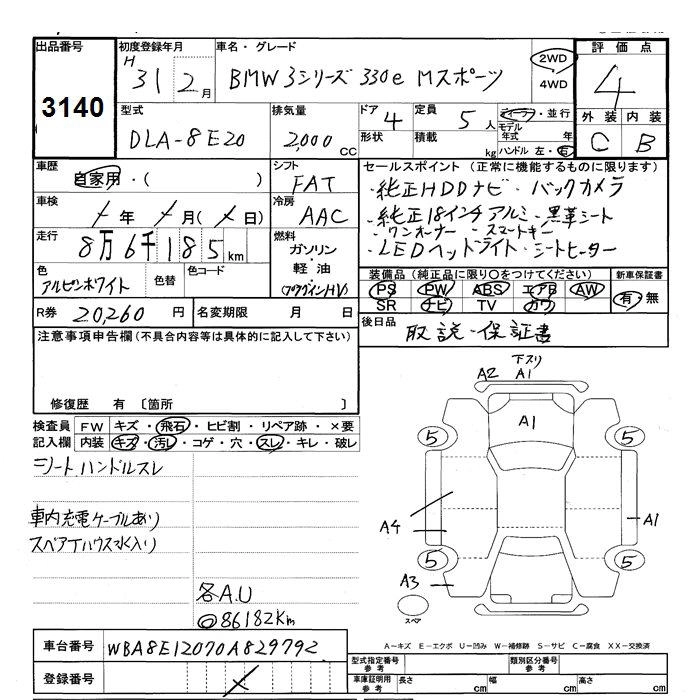 出品番号
3140
初度登録年月
H 31 2月
車名・グレード
BMW 3シリーズ 330e Mスポーツ
2WD
4WD
評価点
4
外装 内装
C B
型式
DLA-8E20
排気量
2,000 CC
ドア 4
形状
定員 5人
積載 kg
ディーラー・並行
モデル年式 年
ハンドル 左・右
車歴
自家用・( )
シフト
FAT
セールスポイント (正常に機能するものに限ります)
・純正HDDナビ・バックカメラ
・純正18インチアルミ・黒革シート
・ワンオーナー・スマートキー
・LEDヘッドライト・シートヒーター
車検
年 月( 日)
冷房
AAC
走行
8万6千185km
燃料
ガソリン
・
軽油
(プラグインHV)
色
アルピンホワイト
色替
色コード
装備品 (純正品に限り○をつけてください)
PS PW ABS エアB AW
SR ナビ TV カワ
新車保証書
有・無
R券 20,260 円
名変期限 月 日
後日品
取説・保証書
注意事項申告欄 (不具合内容等は具体的に記入して下さい)
修復歴 有 〔箇所 〕
検査員記入欄
FW キズ・飛石・ヒビ割・リペア跡・×要
内装 キズ・汚レ・コゲ・穴・スレ・キレ・破レ
シート、ハンドルスレ
車内充電ケーブルあり
スペアTハウス水入り
各A.U
◎86182km
下スリ
A2 A1
A1
5 5
A4
A1
5 5
A3
スペア
車台番号 WBA8E12070A829792
登録番号
A−キズ E−エクボ U−凹み W−補修跡 S−サビ C−腐食 XX−交換済
型式指定番号 参考
類別区分番号 参考
車庫証明用 参考
長さ cm 幅 cm 高さ cm